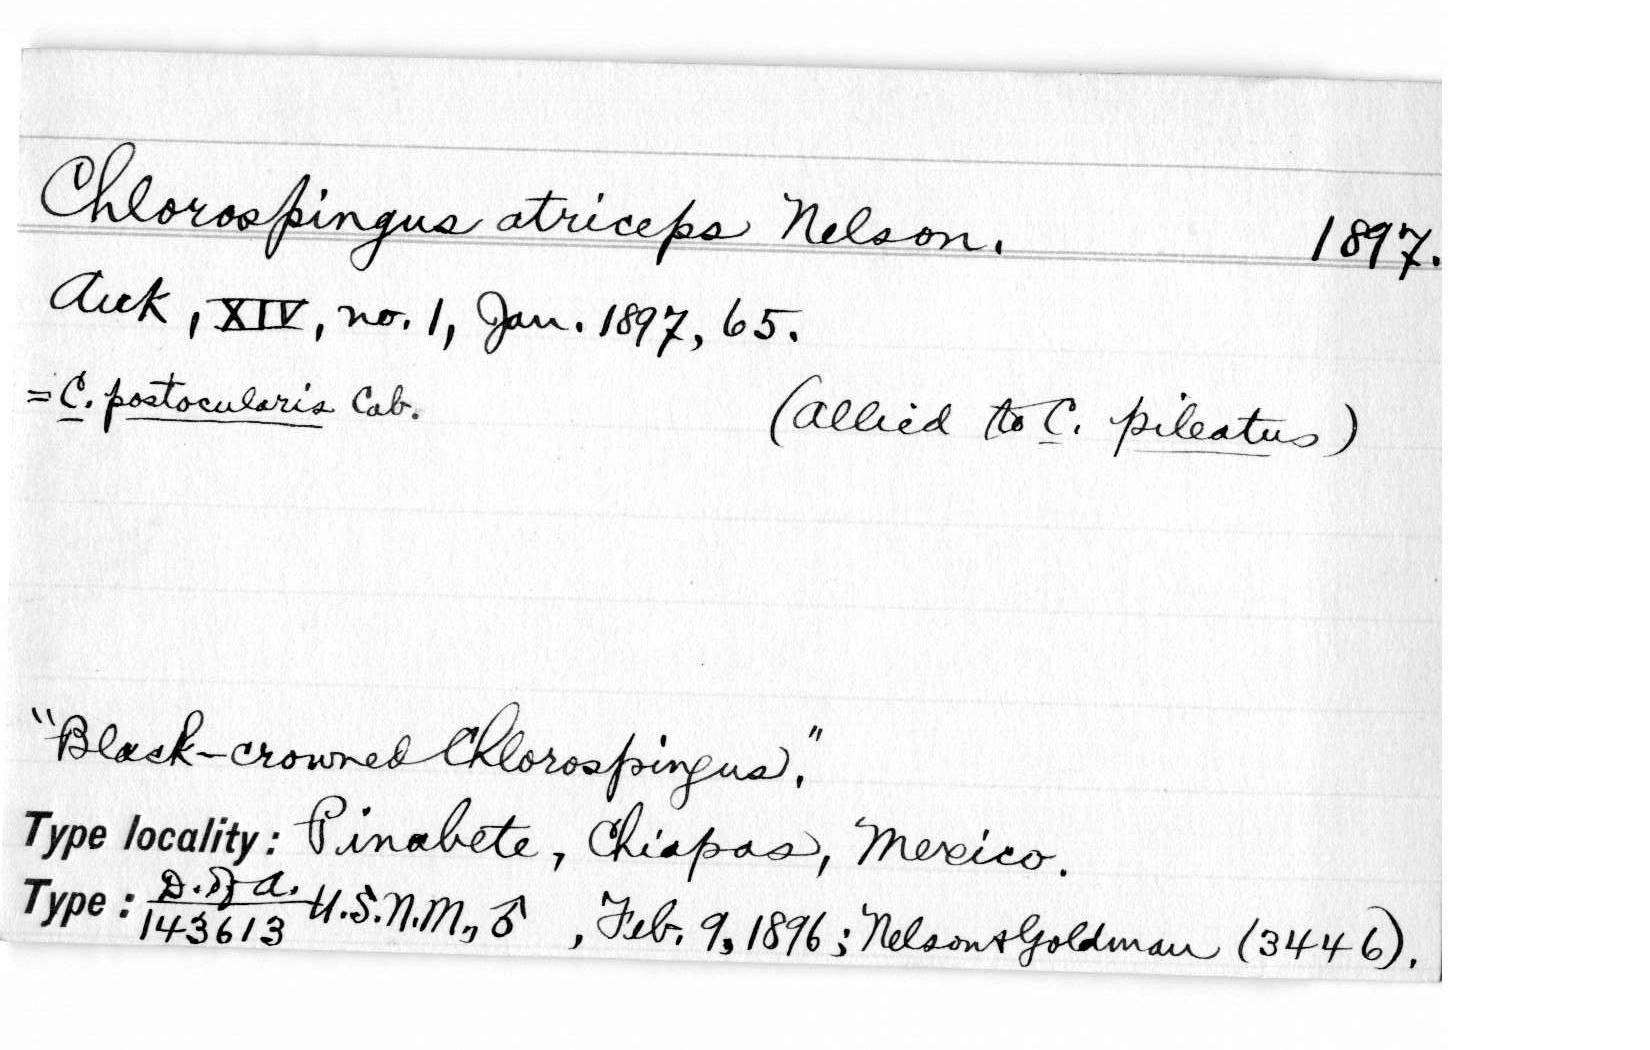 Chlorospingus atriceps Nelson. 1897.
Auk, XIV, no. 1, Jan. 1897, 65.
= C. postocularis Cab. (Allied to C. pileatus)
"Black-crowned Chlorospingus."
Type locality: Pinabete, Chiapas, Mexico.
Type: D. of A. / 143613 U.S.N.M., ♂, Feb. 9, 1896; Nelson & Goldman (3446).